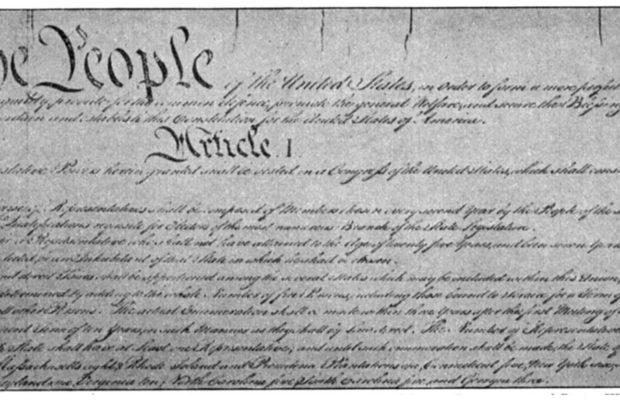 he People of the United States, in Order to form a more perfect
provide for the common defence, promote the general Welfare, and secure the Blessing
and establish this Constitution for the United States of America.
Article. I.
Powers herein granted shall be vested in a Congress of the United States, which shall cons
Representatives shall be composed of Members chosen every second Year by the People of the
Qualifications requisite for Electors of the most numerous Branch of the State Legislature.
Representative who shall not have attained to the Age of twenty five Years, and been seven Years
an Inhabitant of that State in which he shall be chosen.
and direct Taxes shall be apportioned among the several States which may be included within this Union,
determined by adding to the whole Number of free Persons, including those bound to Service for a Term of
all other Persons. The actual Enumeration shall be made within three Years after the first Meeting of
Term of ten Years, in such Manner as they shall by Law direct. The Number of Representatives
State shall have at Least one Representative; and until such enumeration shall be made, the State of
Massachusetts eight, Rhode Island and Providence Plantations one, Connecticut five, New York six,
Maryland six, Virginia ten, North Carolina five, South Carolina five, and Georgia three.